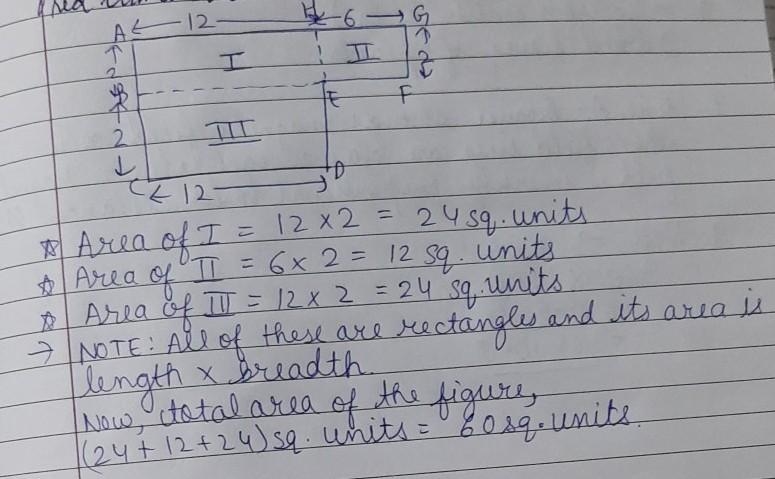 A 12 H 6 G
2 I II 2
B E F
2 III
C 12 D
☆ Area of I = 12 × 2 = 24 sq. units
☆ Area of II = 6 × 2 = 12 sq. units
☆ Area of III = 12 × 2 = 24 sq. units
→ NOTE: All of these are rectangles and its area is
length × breadth.
Now, total area of the figure,
(24 + 12 + 24) sq. units = 60 sq. units.